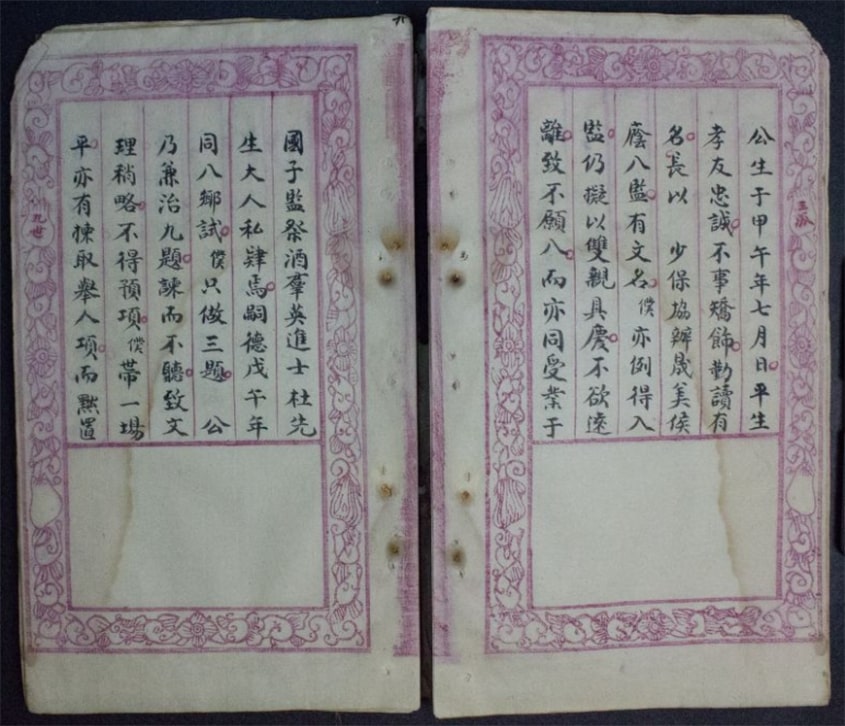 公生于甲午年七月日平生
孝友忠誠不事矯飾勤讀有
名長以 少保協辦晟美侯
廕入監有文名僕亦例得入
監仍擬以雙親具慶不欲遠
離致不願入而亦同受業于
國子監祭酒羣英進士杜先
生大人私肄焉嗣德戊午年
同入鄉試僕只做三題 公
乃兼治九題諫而不聽致文
理稍略不得預項僕帶一場
平亦有揀取舉人項而黙置
九世